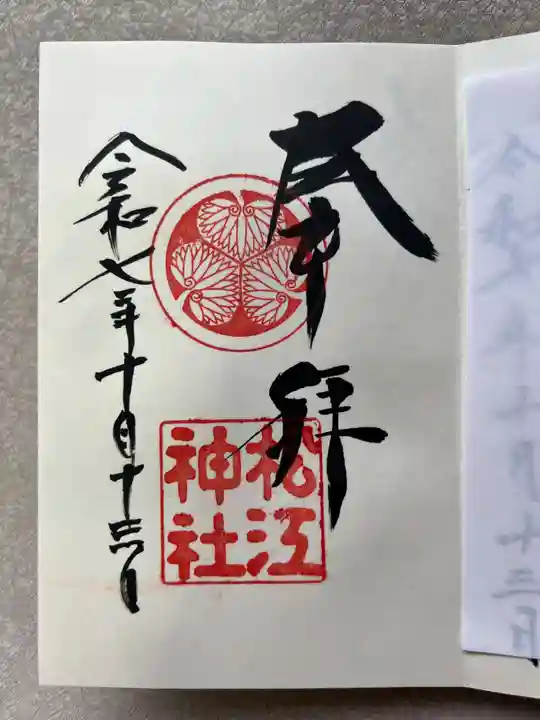 奉拝
松江
神社
令和七年十月十三日